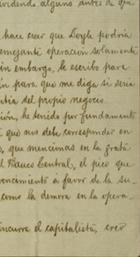 videndo alguno antes de que
hace creer que Doyle podría
semejante operación solamente
in embargo, le escribo para
ón para que me diga si sería
ntía del propio negocio
ión, he tenido por fundamento
que nos debe corresponder en
que mencionas en la grati
el Banco Central, el pico que
vencimiento a favor de la su
como la demora en la opera
incurre el capitalista, creo